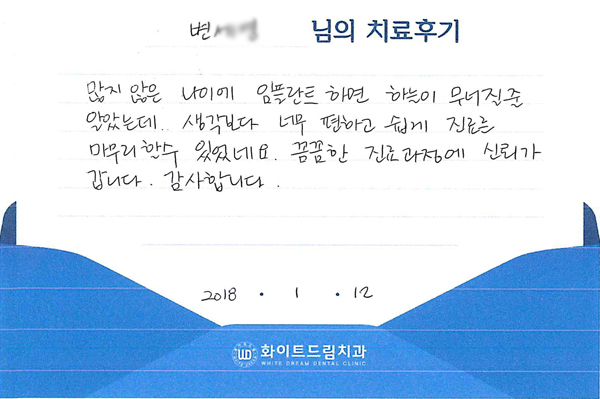 변 님의 치료후기
많지 않은 나이에 임플란트 하면 하늘이 무너질줄
알았는데.. 생각보다 너무 편하고 쉽게 진료를
마무리할수 있었네요. 꼼꼼한 진료과정에 신뢰가
갑니다. 감사합니다.
2018 · 1 · 12
WD 화이트드림치과
WHITE DREAM DENTAL CLINIC